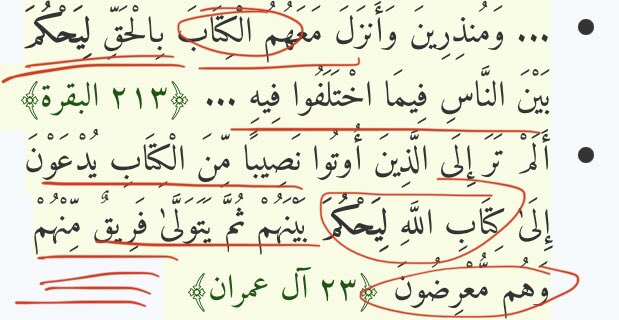 • ... وَمُنذِرِينَ وَأَنزَلَ مَعَهُمُ الْكِتَابَ بِالْحَقِّ لِيَحْكُمَ
بَيْنَ النَّاسِ فِيمَا اخْتَلَفُوا فِيهِ ... ﴿٢١٣ البقرة﴾
• أَلَمْ تَرَ إِلَى الَّذِينَ أُوتُوا نَصِيبًا مِّنَ الْكِتَابِ يُدْعَوْنَ
إِلَىٰ كِتَابِ اللَّهِ لِيَحْكُمَ بَيْنَهُمْ ثُمَّ يَتَوَلَّىٰ فَرِيقٌ مِّنْهُمْ
وَهُم مُّعْرِضُونَ ﴿٢٣ آل عمران﴾